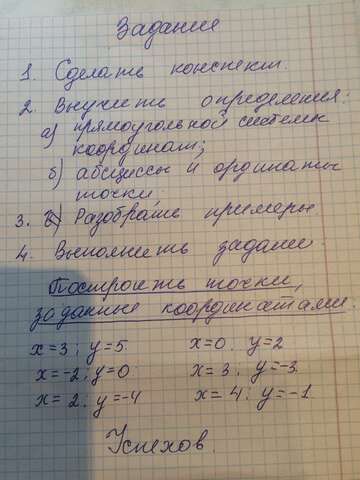 Задание
1. Сделать конспект.
2. Выучить определения:
а) прямоугольной системы
координат;
б) абсциссы и ординаты
точки.
3. Разобрать примеры.
4. Выполнить задание:
Построить точки,
заданные координатами.
x=3; y=5 x=0; y=2
x=-2; y=0 x=3; y=-3
x=2; y=-4 x=4; y=-1
Успехов.